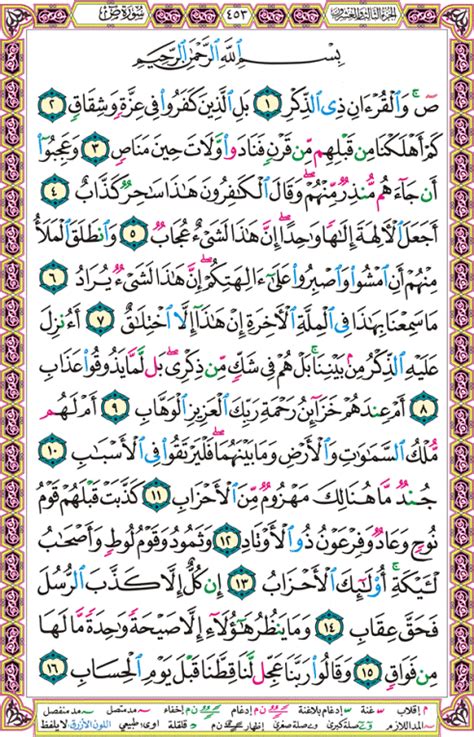 الجزء الثالث والعشرون ٤٥٣ سورة ص
بِسْمِ ٱللَّهِ ٱلرَّحْمَٰنِ ٱلرَّحِيمِ
صٓ ۚ وَٱلْقُرْءَانِ ذِى ٱلذِّكْرِ ١ بَلِ ٱلَّذِينَ كَفَرُوا۟ فِى عِزَّةٍ وَشِقَاقٍ ٢
كَمْ أَهْلَكْنَا مِن قَبْلِهِم مِّن قَرْنٍ فَنَادَوا۟ وَّلَاتَ حِينَ مَنَاصٍ ٣ وَعَجِبُوٓا۟
أَن جَآءَهُم مُّنذِرٌ مِّنْهُمْ ۖ وَقَالَ ٱلْكَٰفِرُونَ هَٰذَا سَٰحِرٌ كَذَّابٌ ٤
أَجَعَلَ ٱلْءَالِهَةَ إِلَٰهًا وَٰحِدًا ۖ إِنَّ هَٰذَا لَشَىْءٌ عُجَابٌ ٥ وَٱنطَلَقَ ٱلْمَلَأُ
مِنْهُمْ أَنِ ٱمْشُوا۟ وَٱصْبِرُوا۟ عَلَىٰٓ ءَالِهَتِكُمْ ۖ إِنَّ هَٰذَا لَشَىْءٌ يُرَادُ ٦
مَا سَمِعْنَا بِهَٰذَا فِى ٱلْمِلَّةِ ٱلْءَاخِرَةِ إِنْ هَٰذَآ إِلَّا ٱخْتِلَٰقٌ ٧ أَءُنزِلَ
عَلَيْهِ ٱلذِّكْرُ مِنۢ بَيْنِنَا ۚ بَلْ هُمْ فِى شَكٍّ مِّن ذِكْرِى ۖ بَل لَّمَّا يَذُوقُوا۟ عَذَابِ
٨ أَمْ عِندَهُمْ خَزَآئِنُ رَحْمَةِ رَبِّكَ ٱلْعَزِيزِ ٱلْوَهَّابِ ٩ أَمْ لَهُم
مُّلْكُ ٱلسَّمَٰوَٰتِ وَٱلْأَرْضِ وَمَا بَيْنَهُمَا ۖ فَلْيَرْتَقُوا۟ فِى ٱلْأَسْبَٰبِ ١٠
جُندٌ مَّا هُنَالِكَ مَهْزُومٌ مِّنَ ٱلْأَحْزَابِ ١١ كَذَّبَتْ قَبْلَهُمْ قَوْمُ
نُوحٍ وَعَادٌ وَفِرْعَوْنُ ذُو ٱلْأَوْتَادِ ١٢ وَثَمُودُ وَقَوْمُ لُوطٍ وَأَصْحَٰبُ
لْـَٔيْكَةِ ۚ أُو۟لَٰٓئِكَ ٱلْأَحْزَابُ ١٣ إِن كُلٌّ إِلَّا كَذَّبَ ٱلرُّسُلَ
فَحَقَّ عِقَابِ ١٤ وَمَا يَنظُرُ هَٰٓؤُلَآءِ إِلَّا صَيْحَةً وَٰحِدَةً مَّا لَهَا
مِن فَوَاقٍ ١٥ وَقَالُوا۟ رَبَّنَا عَجِّل لَّنَا قِطَّنَا قَبْلَ يَوْمِ ٱلْحِسَابِ ١٦
إقلاب غنة إدغام بلاغنة إدغام إخفاء مد متصل مد منفصل
المد اللازم صلة كبرى صلة صغرى إظهار قلقلة طبيعي اللون الأزرق لا يلفظ